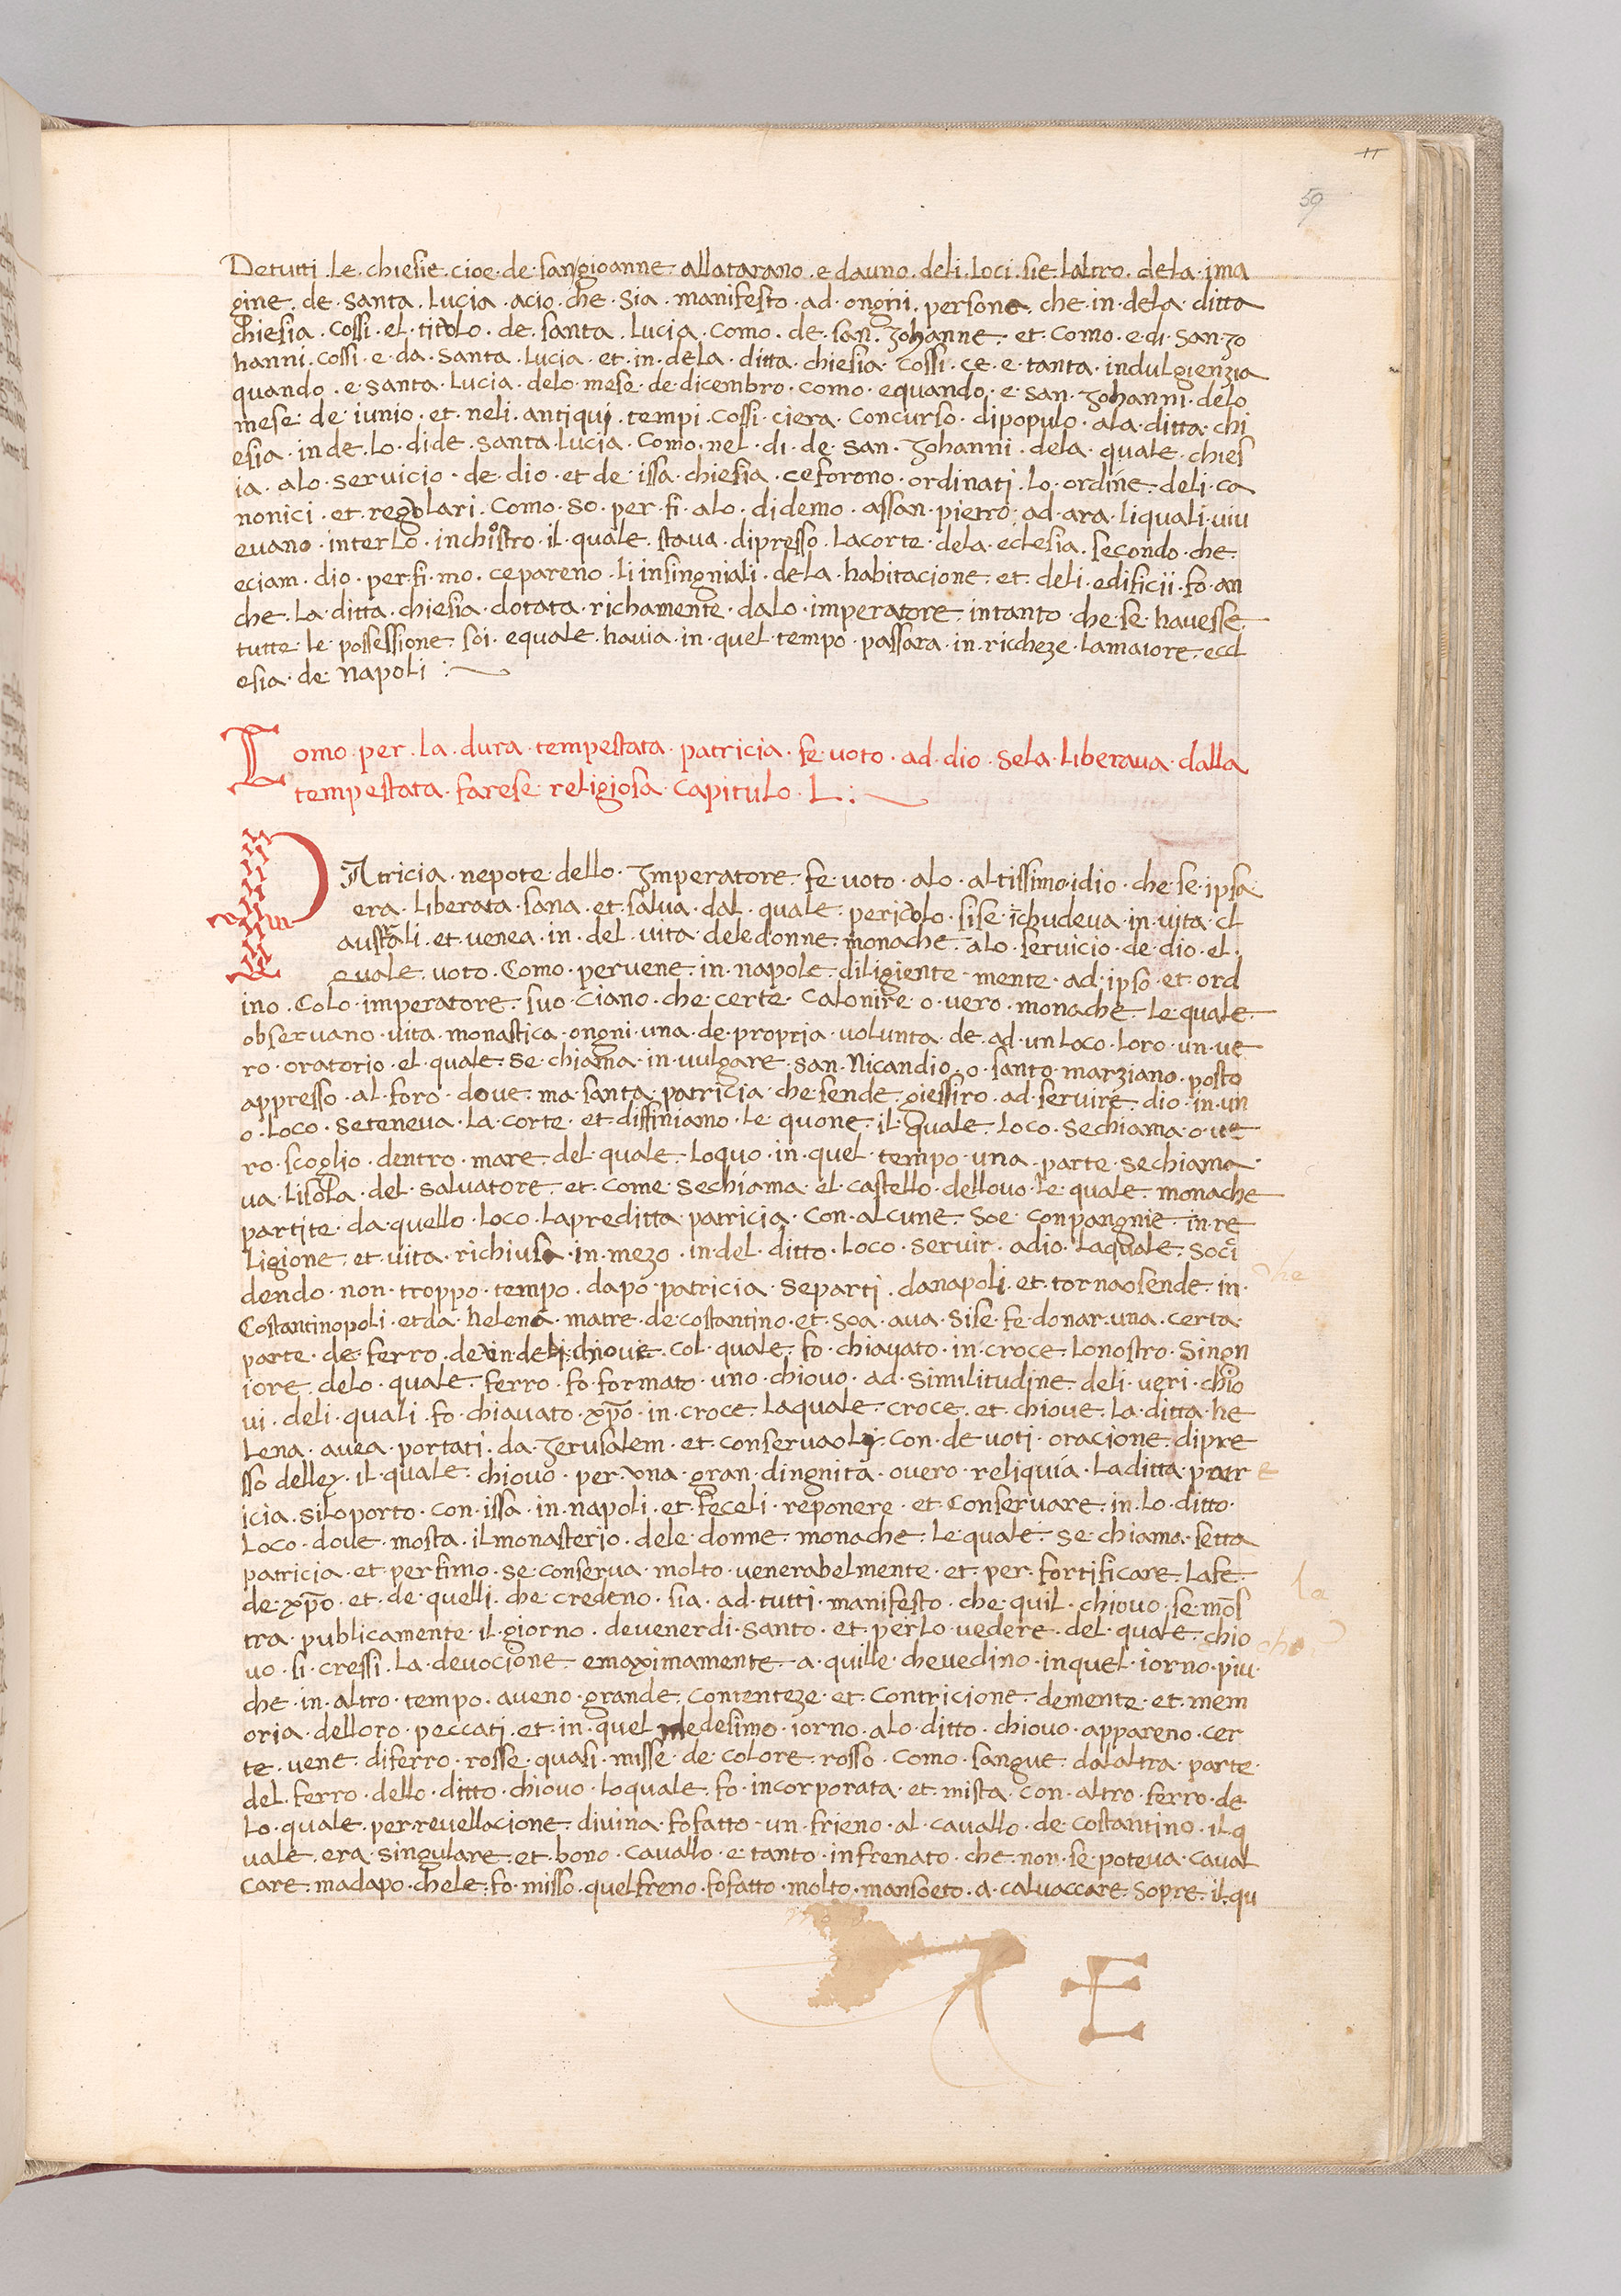 11
59
Detutti · Le · chiesie · cioe · de · san gioanne · allatarano · e dauno · deli · Loci · sie · Laltro · dela · ima
gine · de · santa · Lucia · acio · che · sia · manifesto · ad · ongni · persone · che · in · dela · ditta
chiesia · Cossi · el · titolo · de · santa · Lucia · como · de · san · Johanne · et · como · e · di · san · Jo
hanni · cossi · e · da · santa · Lucia · et · in · dela · ditta · chiesia · Cossi · ce · e · tanta · indulgienzia
quando · e · santa · Lucia · delo · mese · de · dicembro · como · equando · e · san · Johanni · delo
mese · de · iunio · et · neli · antiqui · tempi · Cossi · ciera · Concurso · dipopulo · ala · ditta · chi
esia · inde · lo · dide · santa · Lucia · Como · nel · di · de · san · Johanni · dela · quale · chies
ia · alo · servicio · de · dio · et de · issa · chiesia · ceforono · ordinati · lo · ordine · deli · ca
nonici · et · regolari · Como · so · per · fi · alo · didemo · assan · pietro · ad · ara · liquali · viv
evano · interlo · inchiostro · il · quale · stava · dipresso · Lacorte · dela · eclesia · secondo · che
eciam · dio · per · fi · mo · cepareno · li insingniali · dela · habitacione · et · deli · edificii · fo · an
che · La · ditta · chiesia · dotata · richamente · dalo · imperatore · intanto · che · se · havesse
tutte · le · possessione · soi · equale · havia · in · quel · tempo · passara · in · riccheze · Lamaiore · eccl
esia · de · Napoli :~
Como · per · La · dura · tempestata · patricia · fe · voto · ad · dio · se la · Liberava · dalla
tempestata · farese · religiosa · Capitulo · L :~
PAtricia · nepote · dello · Imperatore · fe · voto · alo · altissimo · idio · che · se · ipsa
era · Liberata · sana · et · salva · dal · quale · pericolo · sise · ichudeva · in · vita · cl
australi · et · venea · in · del · vita · dele donne · monache · alo · servicio · de · dio · el ·
quale · voto · Como · pervene · in · napole · diligiente · mente · ad · ipso · et · ord
ino · Colo · imperatore · suo · Ciano · che · certe · Calonire · o · vero · monache · Le quale
observano · vita · monastica · ongni · una · de · propria · volunta · de · ad · un Loco · Loro · un · ve
ro · oratorio · el · quale · se · chiama · in · vulgare · san · Nicandio · o · santo · marziano · posto
appresso · al · foro · dove · mo · santa · patricia · che · sende · giessiro · ad · servire · dio · in · un
o · Loco · seteneva · La · corte · et · diffiniamo · Le · quone · il · quale · Loco · sechiama · o · ve
ro · scoglio · dentro · mare · del · quale · Loquo · in · quel · tempo · una · parte · sechiama
va · Lisola · del · salvatore · et · come · sechiama · el · castello · dellovo · Le · quale · monache
partite · da · quello · Loco · Lapreditta · patricia · Con · alcune · soe · conpangnie · in · re
Ligione · et · vita · richiusa · in · mezo · in · del · ditto · Loco · servir · adio · Laquale · soci
dendo · non · troppo · tempo · dapo · patricia · separti · danapoli · et · tornaosende · in ·
Costantinopoli · et da · helena · matre · de costantino · et · soa · ava · sise · fe · donar · una · certa ·
parte · de · ferro · de · in · deli · chiove · Col · quale · fo · chiavato · in · croce · Lonostro · Singn
iore · delo · quale · ferro · fo · formato · uno · chiovo · ad · similitudine · deli · veri · chio
vi · deli · quali · fo · chiavato · xpo · in · croce · Laquale · croce · et · chiove · La · ditta · he
Lena · avea · portati · da · Jerusalem · et · conservaoli · Con · devoti · oracione · dipre
sso delley · il · quale · chiovo · per · una · gran · dingnita · overo · reliquia · La ditta · patr
icia · siloporto · con · issa · in · napoli · et · feceli · reponere · et · Conservare · in · lo · ditto ·
Loco · dove · mosta · il monasterio · dele · donne · monache · Le quale · se · chiama · setta
patricia · et · perfimo · se · conserva · molto · venerabelmente · et · per · fortificare · Lafe
de · xpo · et · de · quelli · che · credeno · sia · ad · tutti · manifesto · che · quil · chiovo · se · mos
tra · publicamente · il · giorno · devenerdi · santo · et · perlo · vedere · del · quale · chio
vo · si · cressi · La · devocione · emaximamente · a · quille · chevedino · inquel · iorno · piu ·
che · in · altro · tempo · aveno · grande · Contenteze · et · Contricione · demente · et · mem
oria · delloro · peccati · et · in · quel · medesimo · iorno · alo · ditto · chiovo · appareno · cer
te · vene · diferro · rosse · quasi · misse · de · colore · rosso · Como · sangue · dalaltra · parte ·
del · ferro · dello · ditto · chiovo · loquale · fo · incorporata · et · mista · con · altro · ferro · de
Lo · quale · per · revellacione · divina · fofatto · un · frieno · al · cavallo · de · costantino · il · q
uale · era · singulare · et · bono · Cavallo · e · tanto · infrenato · che · non · se · poteva · caval
care · madapo · chele · fo · misso · quel freno · fofatto · molto · mansoeto · a · calvaccare · sopre · il · qu
he
e
la
che